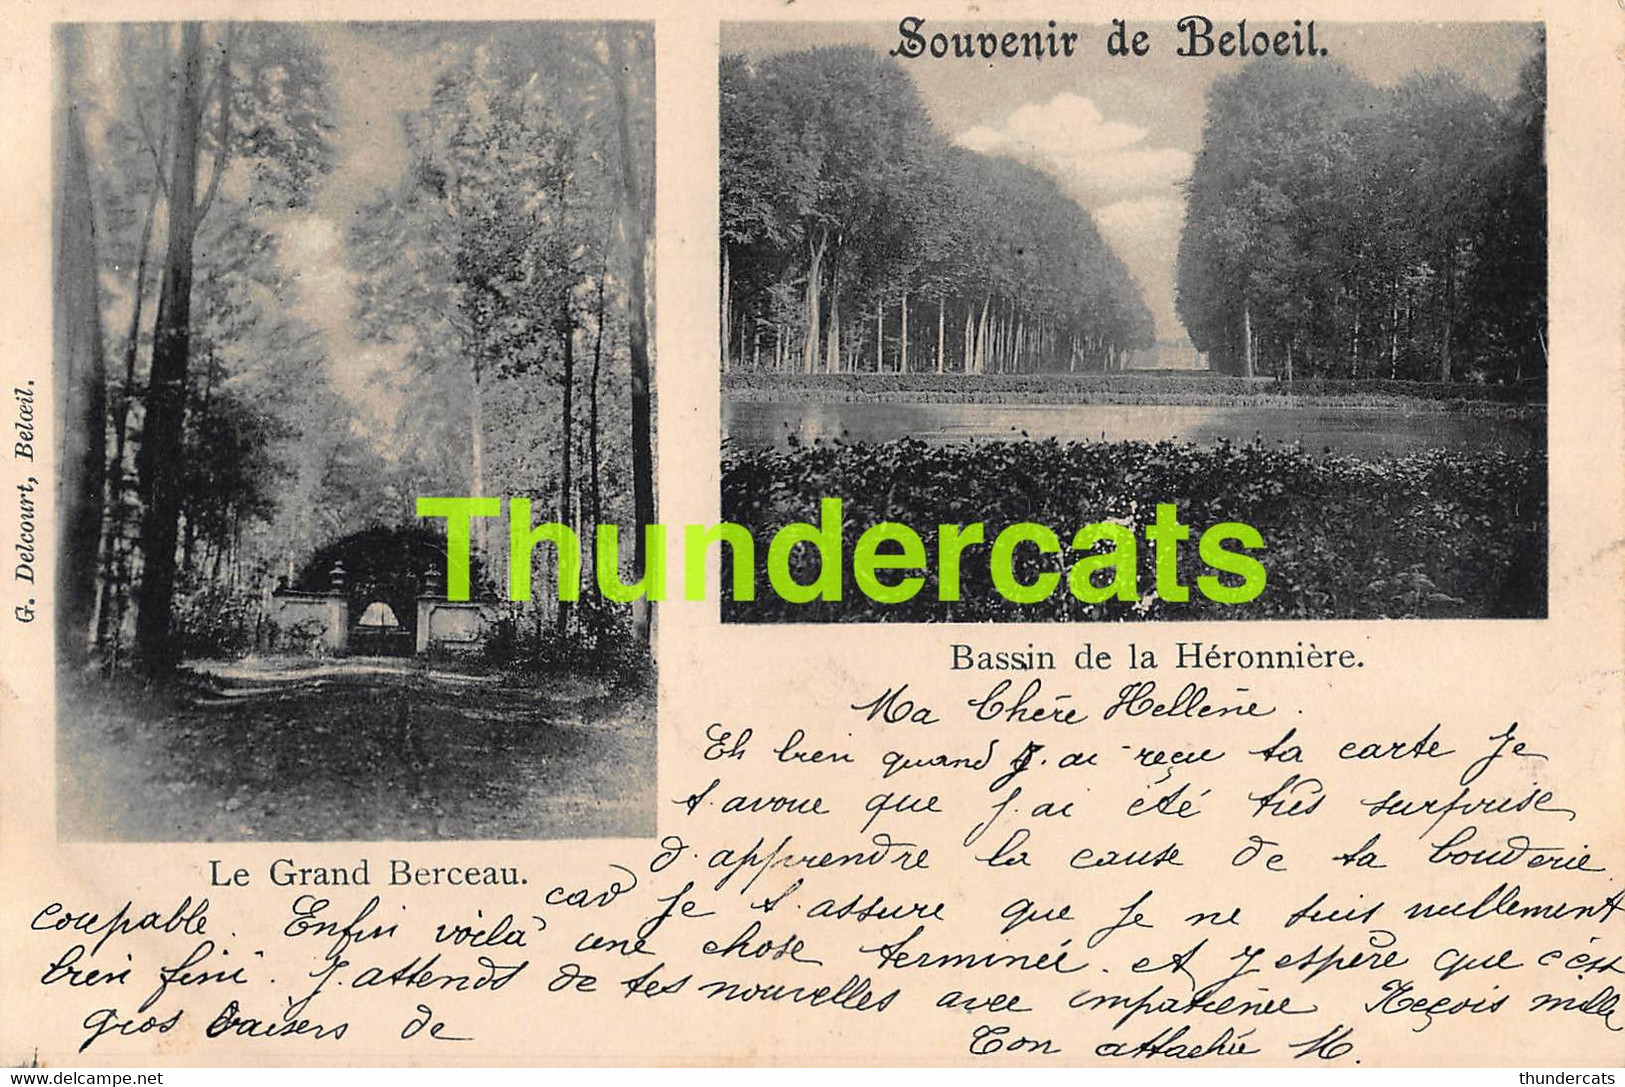 Souvenir de Beloeil.
G. Delcourt, Belœil.
Thundercats
Bassin de la Héronnière.
Le Grand Berceau.
Ma Chère Hellène.
Eh bien quand J'ai reçu ta carte Je
t'avoue que J'ai été très surprise
d'apprendre la cause de ta bouderie
car Je t'assure que Je ne suis nullement
coupable. Enfin voilà une chose terminée. et J'espère que c'est
bien fini. J'attends de tes nouvelles avec impatience Reçois mille
gros baisers de Ton attachée M.
thundercats
thundercats